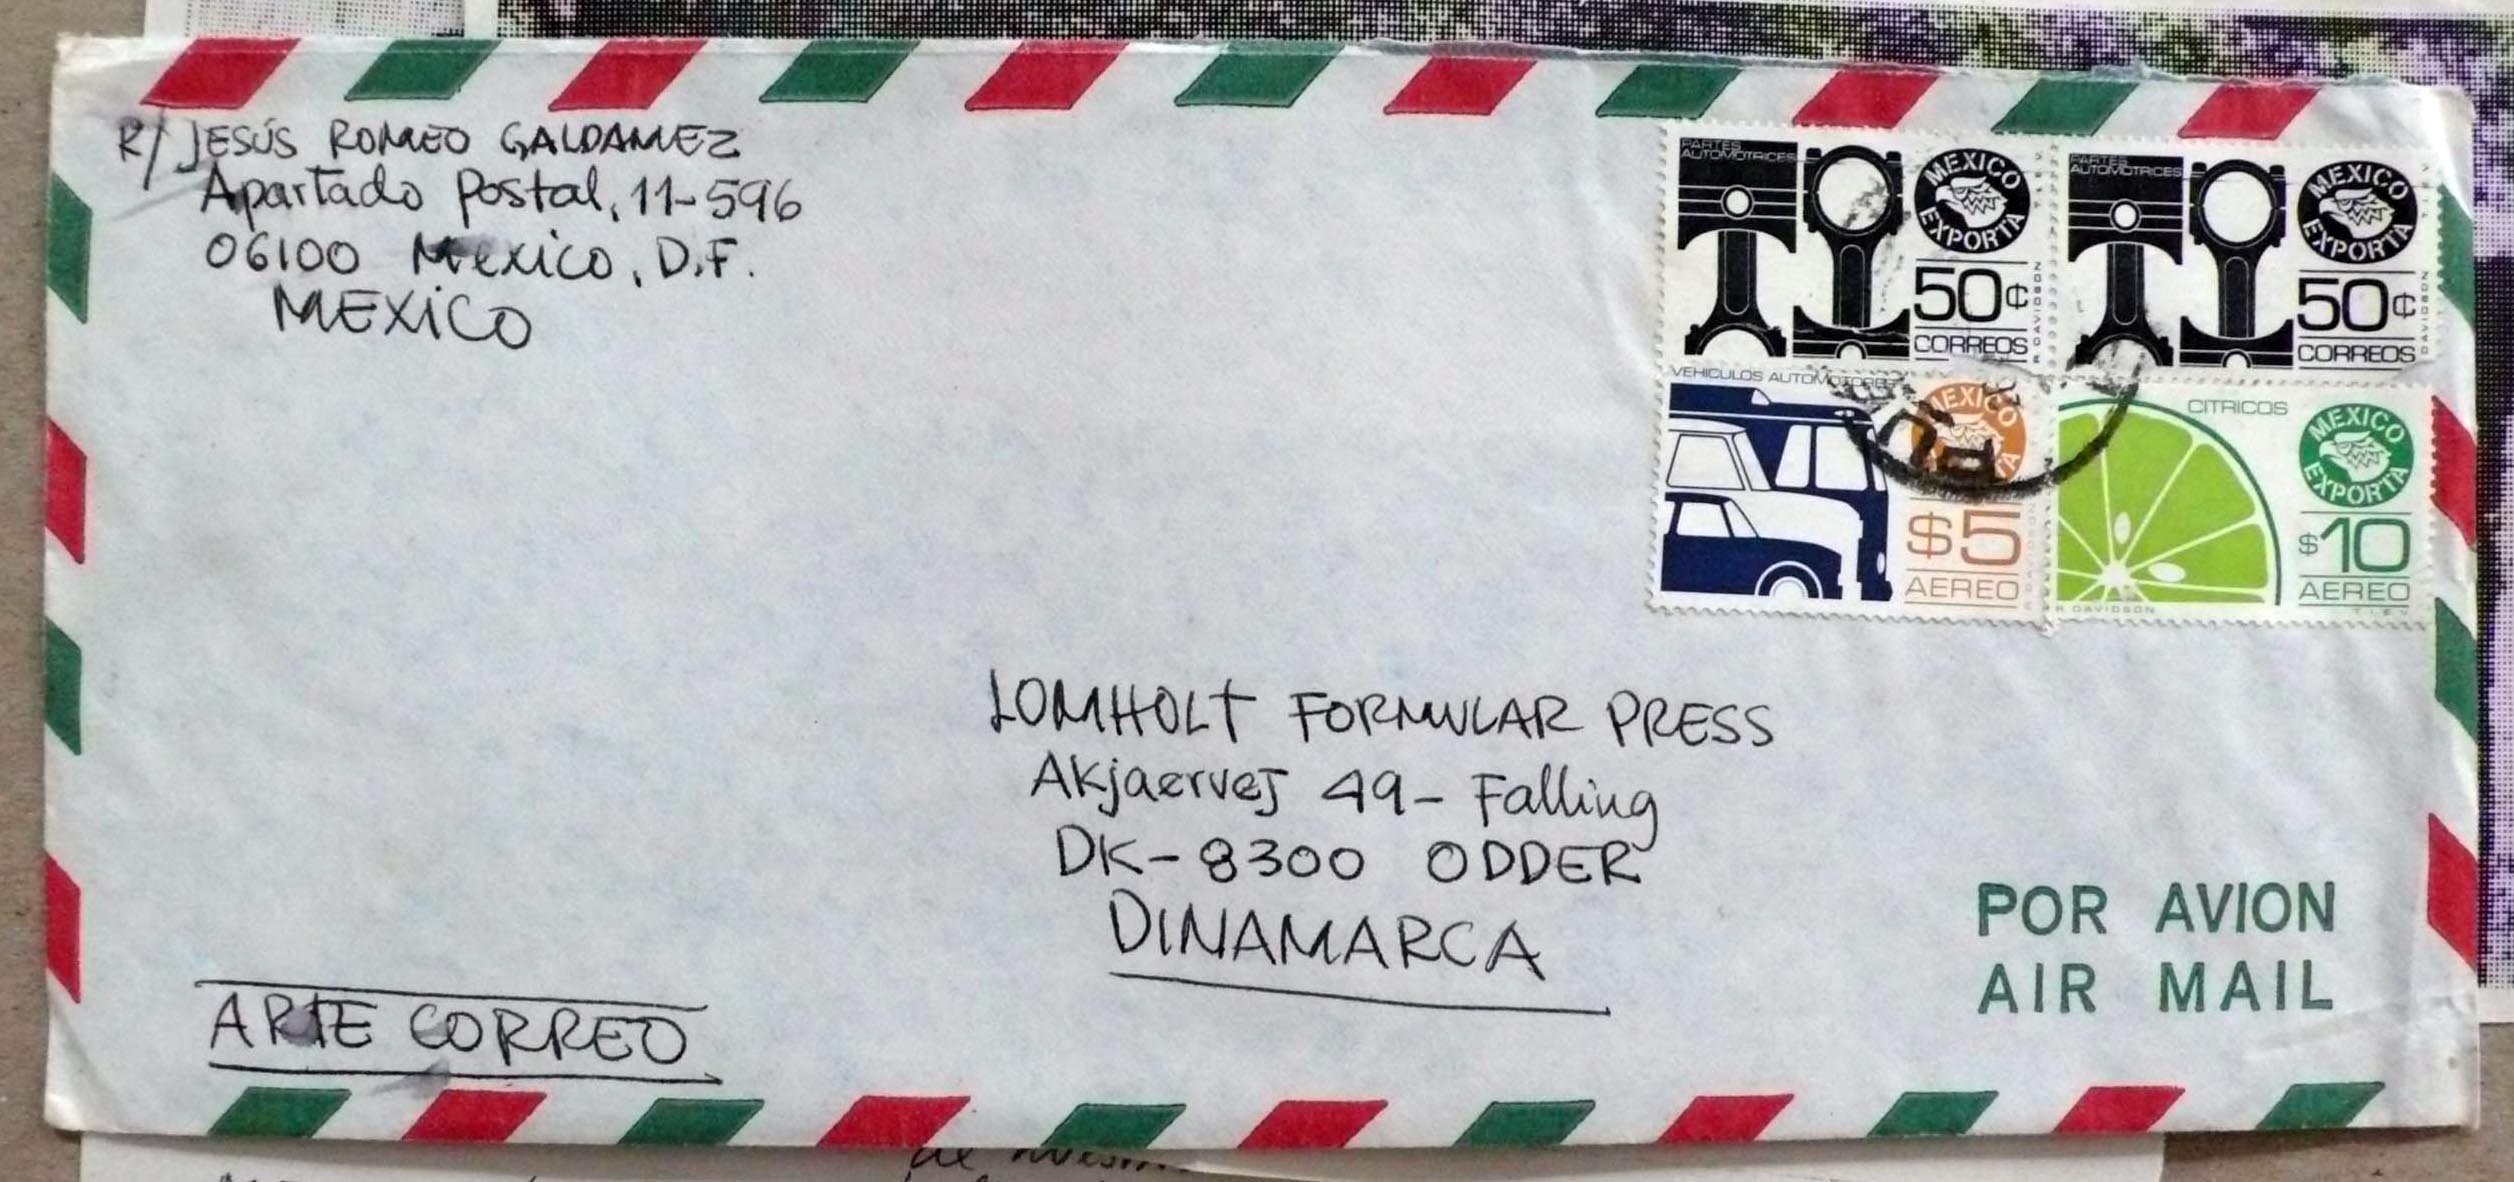 R/ JESÚS ROMEO GALDAMEZ
Apartado Postal, 11-596
06100 Mexico, D.F.
MEXICO
PARTES
AUTOMOTRICES
MEXICO
EXPORTA
50¢
CORREOS
R DAVIDSON
PARTES
AUTOMOTRICES
MEXICO
EXPORTA
50¢
CORREOS
DAVIDSON
T.I.E.V.
VEHICULOS AUTOMOTORES
MEXICO
EXPORTA
$5
AEREO
CITRICOS
MEXICO
EXPORTA
$10
AEREO
R DAVIDSON
T.I.E.V.
LOMHOLT FORMULAR PRESS
Akjaervej 49- Falling
DK-8300 ODDER
DINAMARCA
POR AVION
AIR MAIL
ARTE CORREO